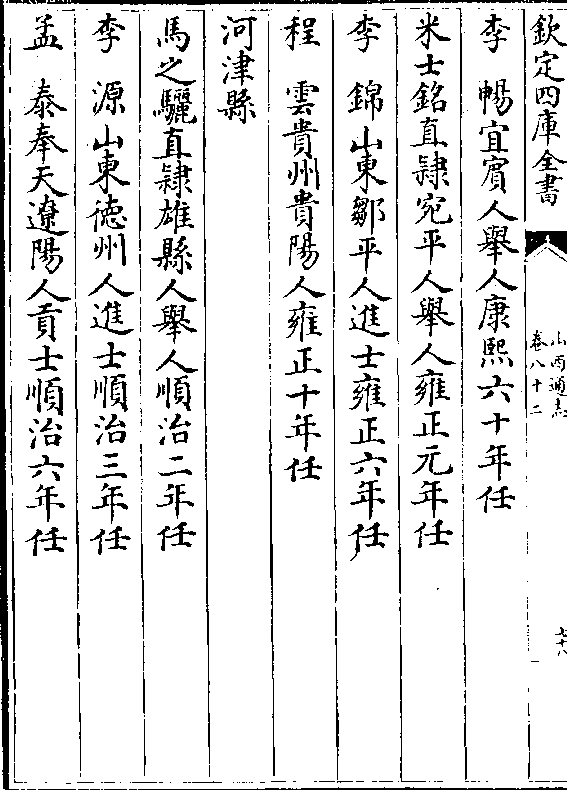 欽定四庫全書
山西通志
卷八十二
七十八
李　暢宜賓人舉人康熙六十年任
米士銘直隸宛平人舉人雍正元年任
李　錦山東鄒平人進士雍正六年任
程　雲貴州貴陽人雍正十年任
河津縣
馬之驪直隸雄縣人舉人順治二年任
李　源山東德州人進士順治三年任
孟　泰奉天遼陽人貢士順治六年任